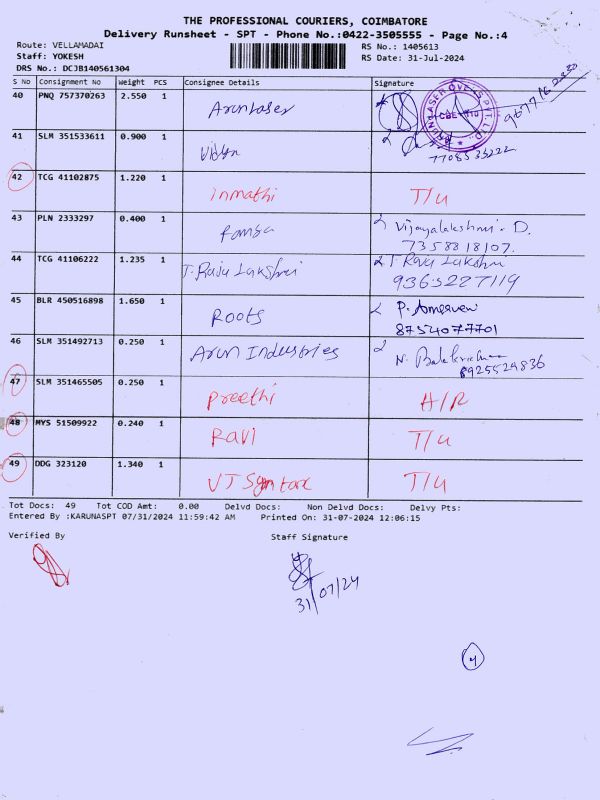 THE PROFESSIONAL COURIERS, COIMBATORE
Delivery Runsheet - SPT - Phone No.:0422-3505555 - Page No.:4
Route: VELLAMADAI
RS No.: 1405613
Staff: YOKESH
RS Date: 31-Jul-2024
DRS No.: DCJB140561304
S No Consignment No Weight PCS Consignee Details Signature
40 PNQ 757370263 2.550 1 Arun Laser
ARUN LASER OVENS PVT. LTD.
7708535222
41 SLM 351533611 0.900 1
42 TCG 41102875 1.220 1 inmathi T/u
43 PLN 2333297 0.400 1 Vijayalakshmi - D.
7358818107.
44 TCG 41106222 1.235 1 T. Raju Lakshmi T Raju Lakshmi
9365227119
45 BLR 450516898 1.650 1 Roots
8754077701
46 SLM 351492713 0.250 1 Arun Industries N. Balakrishna
8925529836
47 SLM 351465505 0.250 1 preethi A/R
48 MYS 51509922 0.240 1 Ravi T/u
49 DDG 323120 1.340 1 VJ Syntax T/u
Tot Docs: 49 Tot COD Amt: 0.00 Delvd Docs: Non Delvd Docs: Delvy Pts:
Entered By :KARUNASPT 07/31/2024 11:59:42 AM Printed On: 31-07-2024 12:06:15
Verified By Staff Signature
31/07/24
4